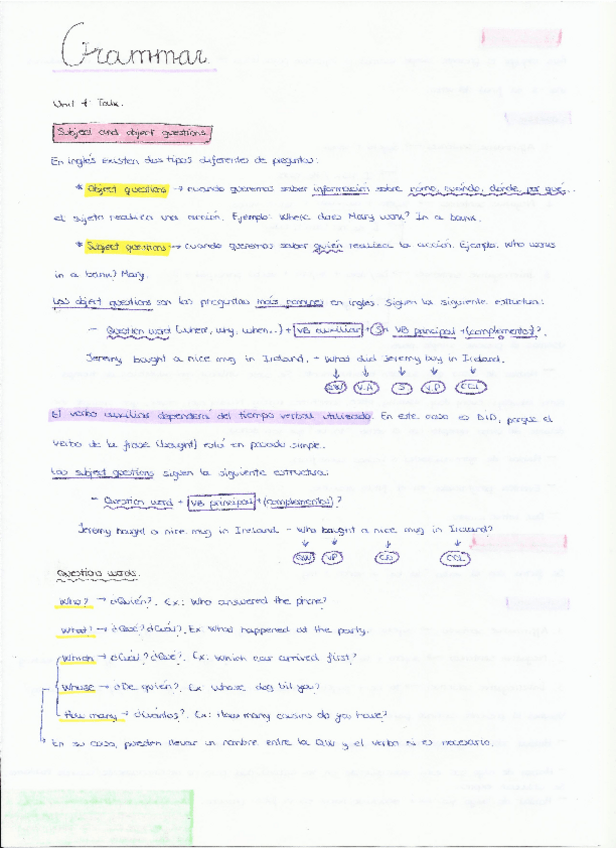 Grammar
Unit 1: Talk.
Subject and object questions
En inglés existen dos tipos diferentes de preguntas:
* Object questions → cuando queremos saber información sobre cómo, cuándo, dónde, por qué...
el sujeto realiza una acción. Ejemplo: Where does Mary work? In a bank.
* Subject questions → cuando queremos saber quién realiza la acción. Ejemplo: Who works
in a bank? Mary.
Las object questions son las preguntas más comunes en inglés. Siguen la siguiente estructura:
- Question word (where, why, when...) + VB auxiliar + S + VB principal + (complementos)?
Jeremy bought a nice mug in Ireland. - What did Jeremy buy in Ireland.
QW V.A S V.P CCL
El verbo auxiliar dependerá del tiempo verbal utilizado. En este caso es DID, porque el
verbo de la frase (bought) está en pasado simple.
Las subject questions siguen la siguiente estructura:
- Question word + VB principal + (complementos)?
Jeremy bought a nice mug in Ireland - Who bought a nice mug in Ireland?
QW VP CD CCL
Question words.
Who? → ¿Quién?. Ex: Who answered the phone?
What? → ¿Qué? ¿Cuál?. Ex: What happened at the party.
Which → ¿Cuál? ¿Qué?. Ex: Which car arrived first?
Whose → ¿De quién?. Ex: Whose dog bit you?
How many → ¿Cuántos?. Ex: How many cousins do you have?
En su caso, pueden llevar un nombre entre la QW y el verbo si es necesario.